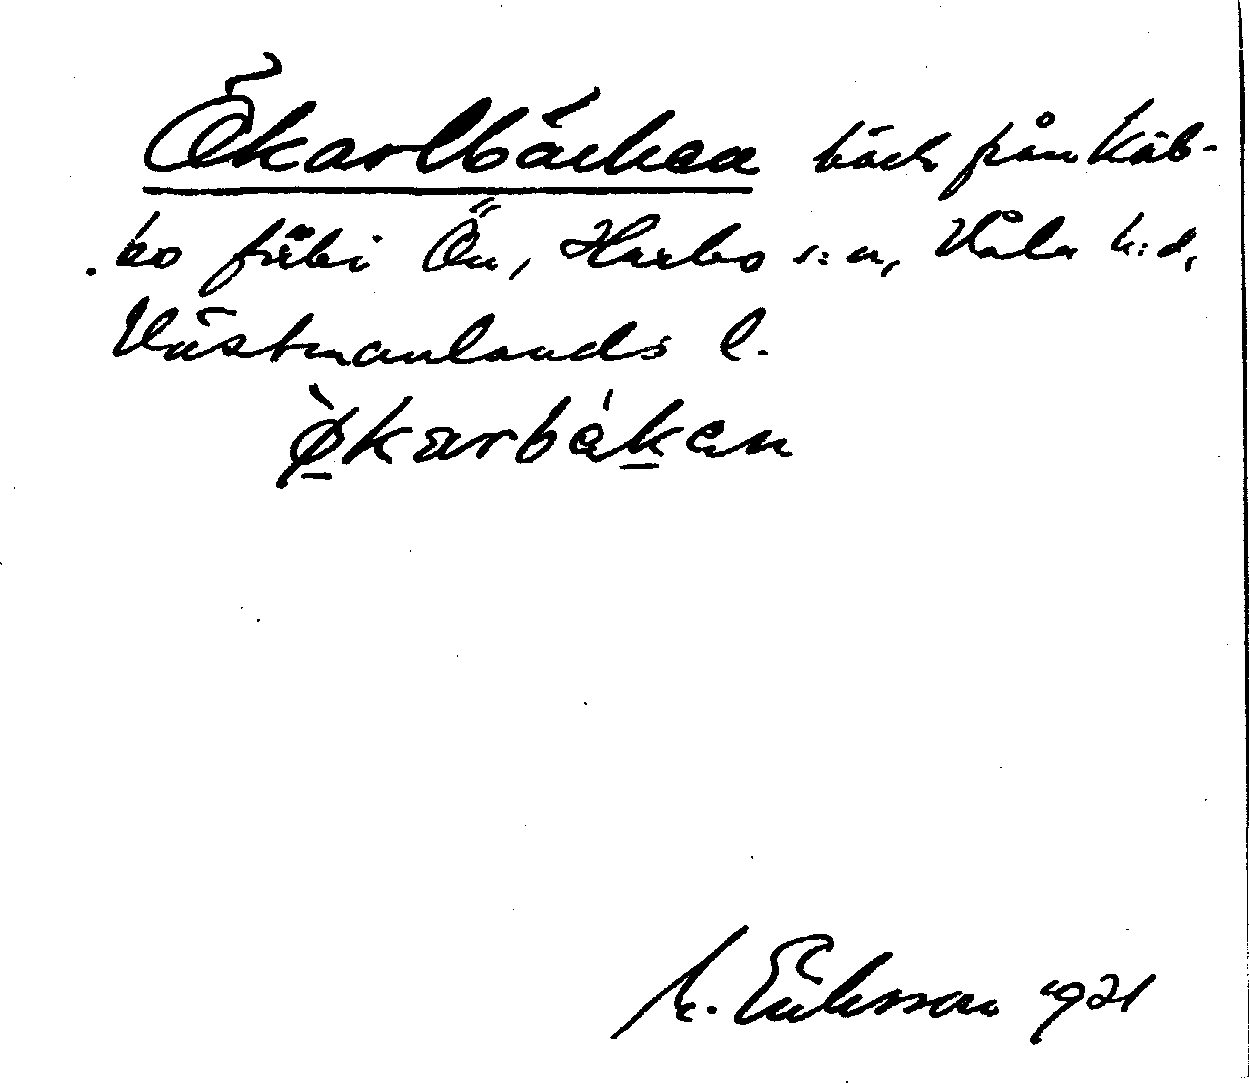 Ökarlbäcken bäck från Käb-
bo förbi Ön, Harbo s:n, Våla h:d,
Västmanlands l.
ø̀karbä́kan
M. Eriksson 1921